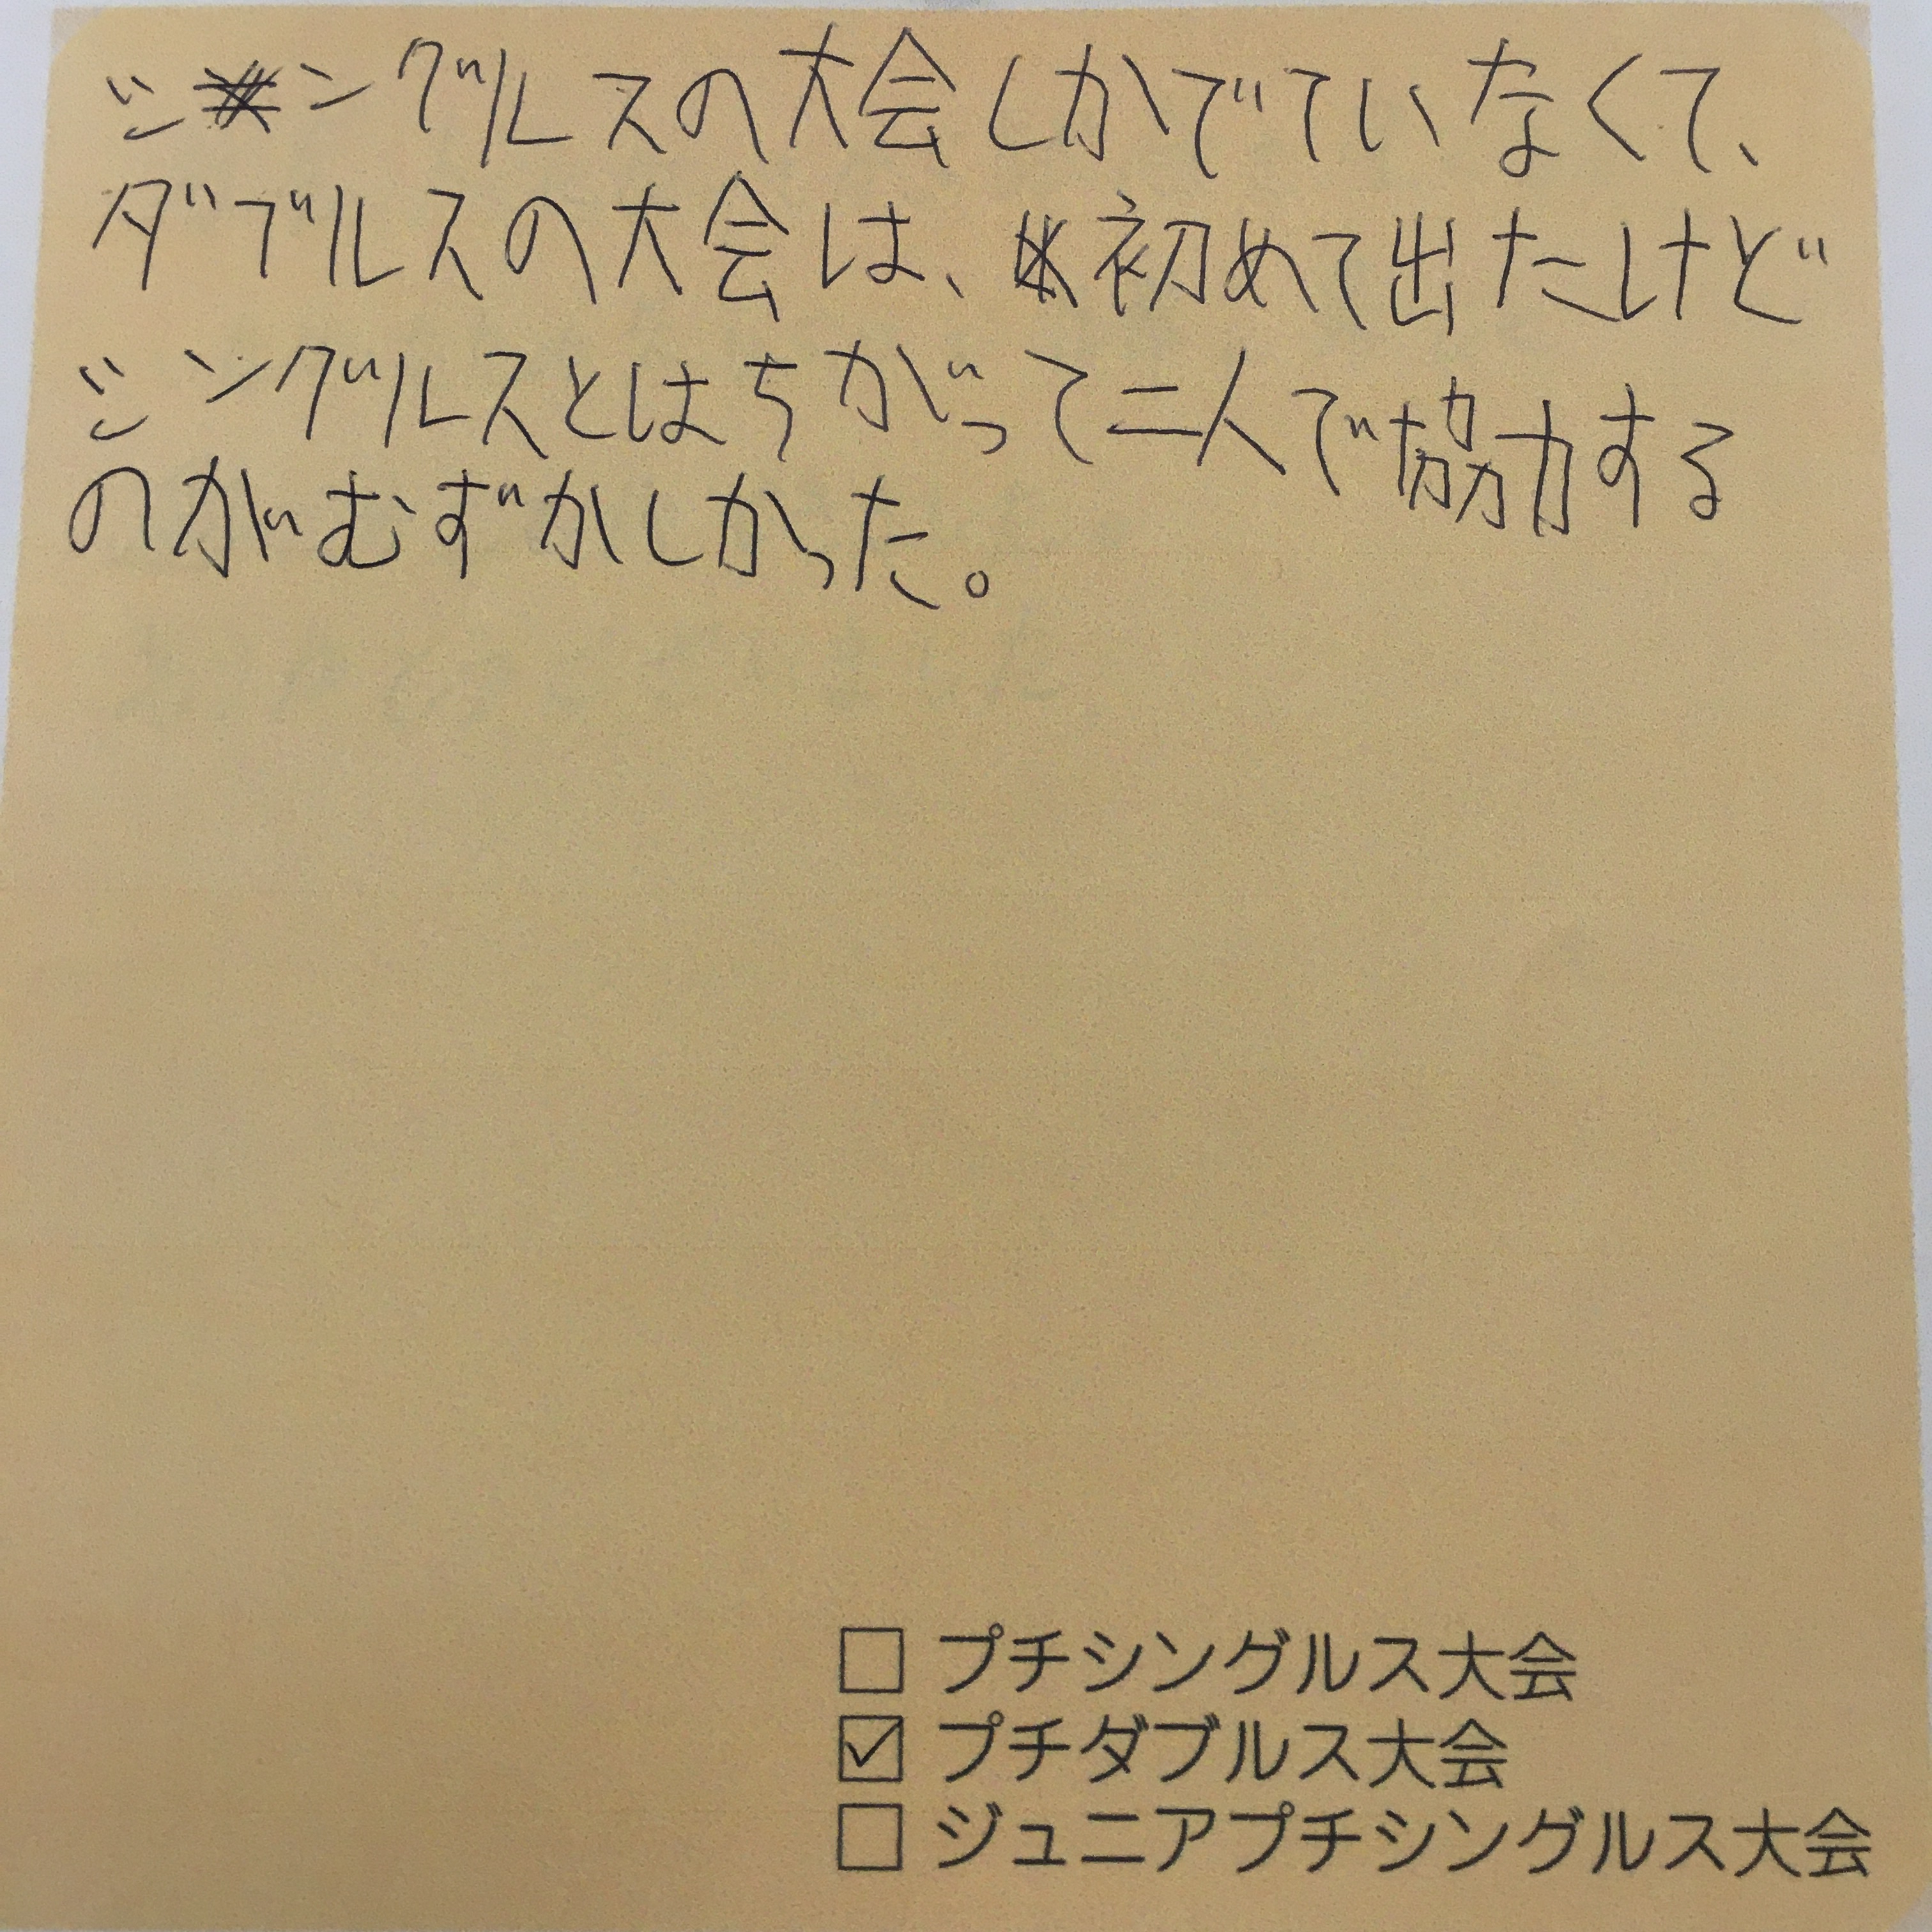 シングルスの大会しかでていなくて、
ダブルスの大会は、初めて出たけど
シングルスとはちがって二人で協力する
のがむずかしかった。
□ プチシングルス大会
☑ プチダブルス大会
□ ジュニアプチシングルス大会